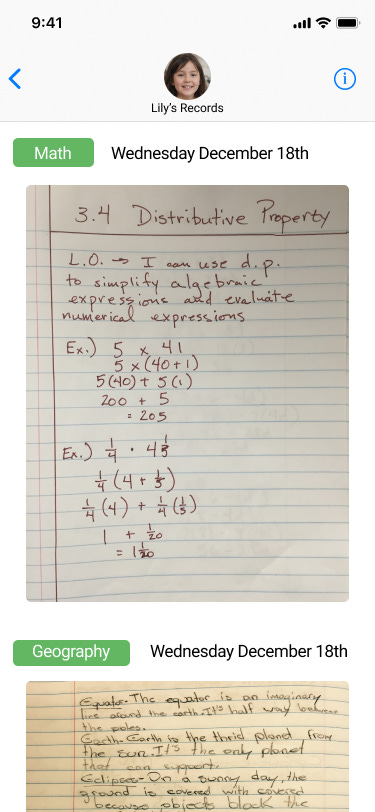 9:41
Lily's Records
Math
Wednesday December 18th
3.4 Distributive Property
L.O. → I can use d.p.
to simplify algebraic
expressions and evaluate
numerical expressions
Ex.) 5 x 41
5 x (40+1)
5(40) + 5(1)
200 + 5
= 205
Ex.) 1/4 · 4 1/5
1/4 (4 + 1/5)
1/4 (4) + 1/4 (1/5)
1 + 1/20
= 1 1/20
Geography
Wednesday December 18th
Equator- The equator is an imaginary
line around the earth. It's half way between
the poles.
Earth- Earth is the thrid planet from
the sun. It's the only planet
that can support.
Eclipses- On a sunny day, the
ground is covered with covered
because objects block the